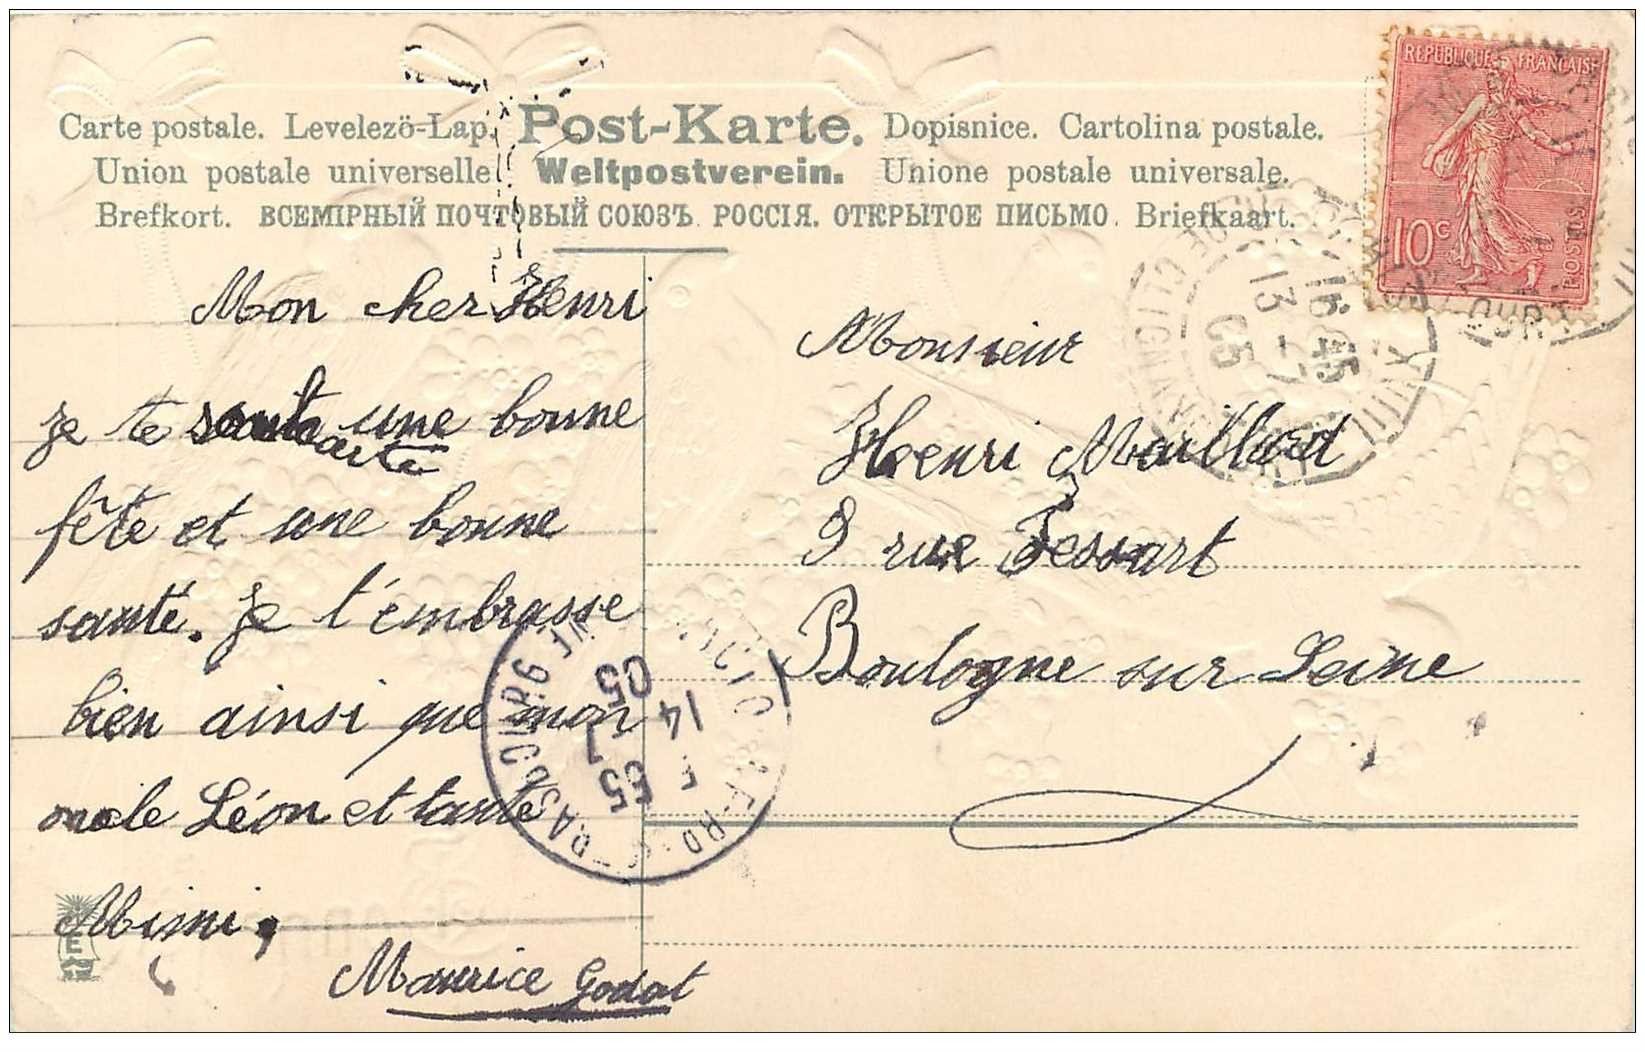 Carte postale. Levelezö-Lap. Post-Karte. Dopisnice. Cartolina postale.
Union postale universelle. Weltpostverein. Unione postale universale.
Brefkort. ВСЕМІРНЫЙ ПОЧТОВЫЙ СОЮЗЪ. РОССІЯ. ОТКРЫТОЕ ПИСЬМО. Briefkaart.
REPUBLIQUE FRANCAISE
10c
POSTES
16 45
13 - 7
05
Mon cher Henri
Je te souhaite une bonne
fête et une bonne
santé. Je t'embrasse
bien ainsi que mon
oncle Léon et tante
Mimi,
Maurice Godat
Monsieur
Henri Maillard
9 rue Fessart
Boulogne sur Seine
14
7
05